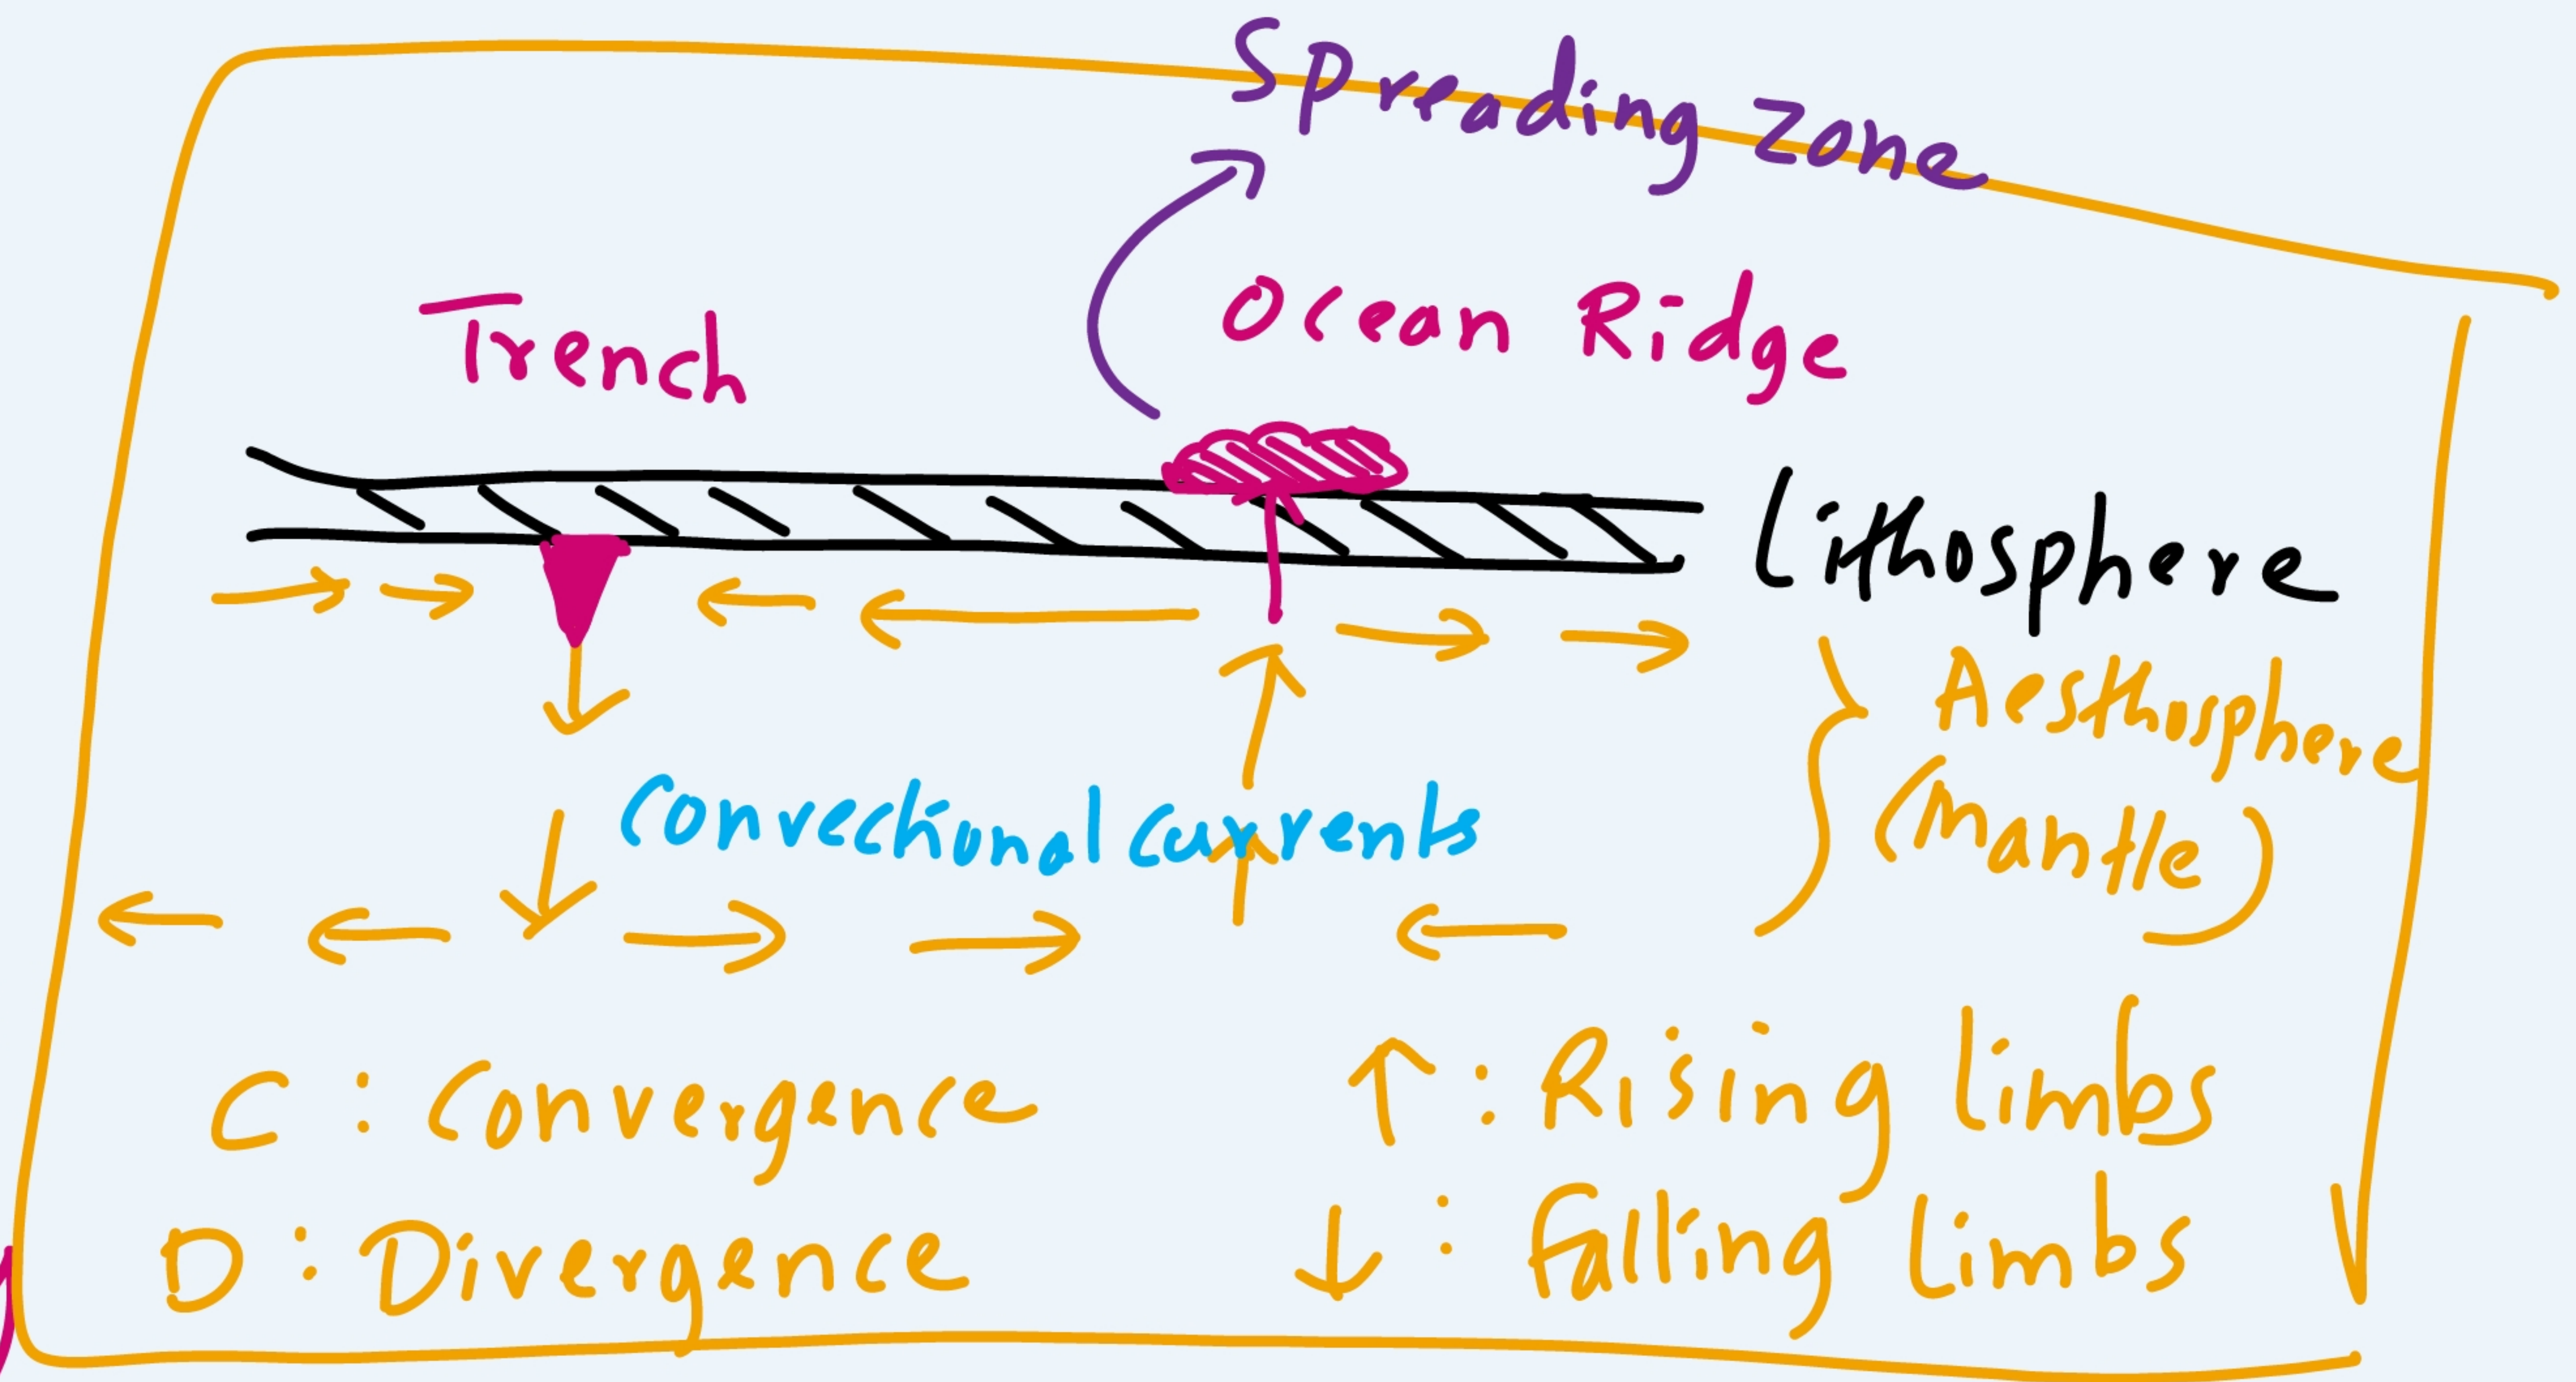 Spreading zone
Trench
Ocean Ridge
Lithosphere
Aesthosphere
(Mantle)
Convectional currents
C : Convergence
↑ : Rising limbs
D : Divergence
↓ : falling limbs